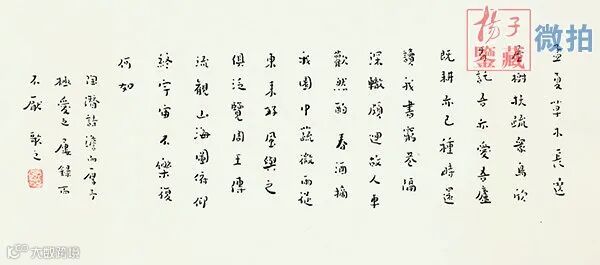 孟夏草木長遶
屋樹扶疏眾鳥欣
有託吾亦愛吾廬
既耕亦已種時還
讀我書窮巷隔
深轍頗迴故人車
歡然酌春酒摘
我園中蔬微雨從
東來好風與之
俱泛覽周王傳
流觀山海圖俯仰
終宇宙不樂復
何如
陶潛詩澹而厚予
極愛之屢錄而
不厭
揚子
鑒藏
微拍
跨境